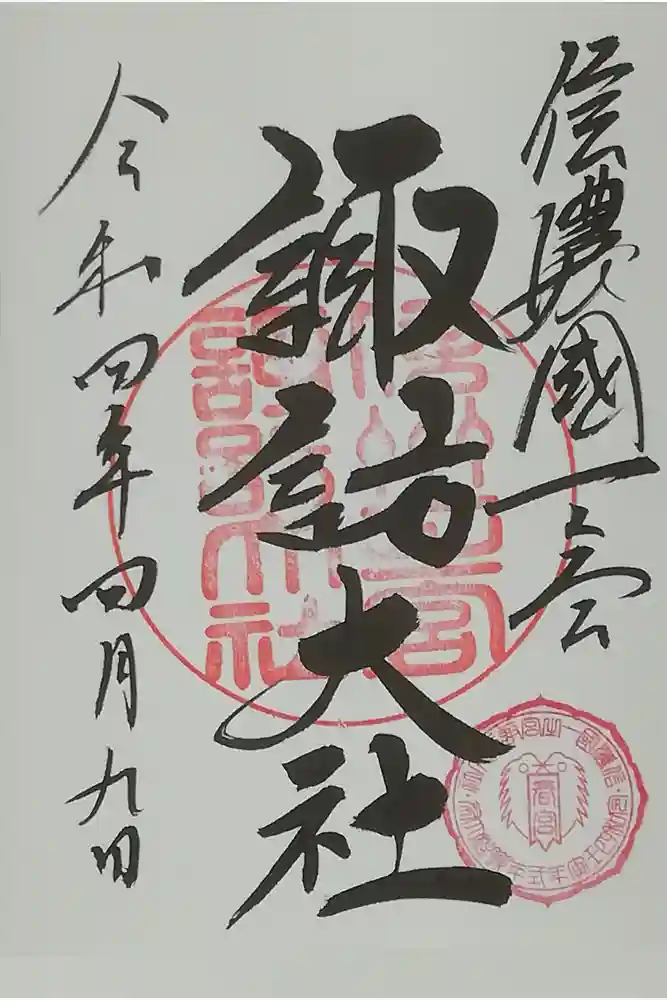 信濃國一宮
諏訪大社
令和四年四月九日
諏訪大社